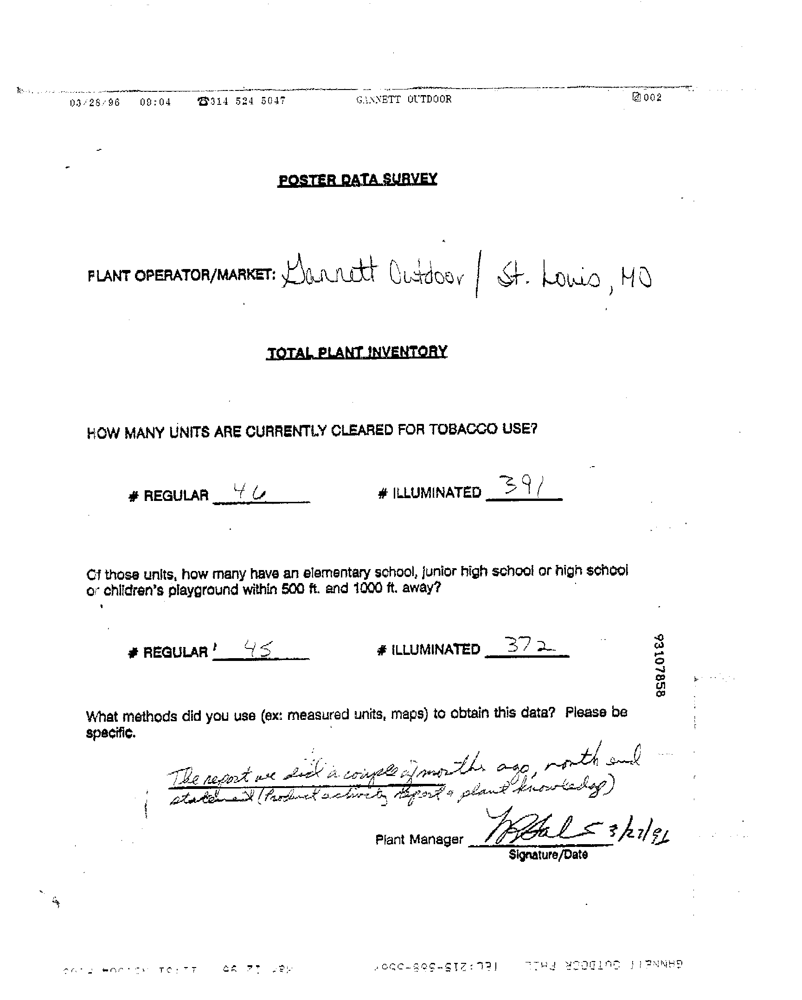 03/28/96 09:04 ☎314 524 5047 GANNETT OUTDOOR 002
POSTER DATA SURVEY
PLANT OPERATOR/MARKET: Gannett Outdoor / St. Louis, MO
TOTAL PLANT INVENTORY
HOW MANY UNITS ARE CURRENTLY CLEARED FOR TOBACCO USE?
# REGULAR 46 # ILLUMINATED 391
Of those units, how many have an elementary school, junior high school or high school
or children's playground within 500 ft. and 1000 ft. away?
# REGULAR 45 # ILLUMINATED 372
93107858
What methods did you use (ex: measured units, maps) to obtain this data? Please be
specific.
The report we did a couple of months ago, month end
statement (Product activity Report & plant knowledge)
Plant Manager 3/27/96
Signature/Date
GANNETT OUTDOOR PHIL TEL:215-